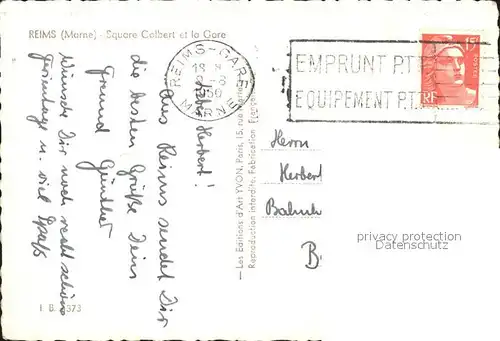 REIMS (Marne) - Square Colbert et la Gare
REIMS-GARE
18 H
8-8
1950
MARNE
EMPRUNT P.T.T.
EQUIPEMENT P.T.T.
RF
Lieber Herbert!
Aus Reims sendet Dir
die besten Grüße Dein
Freund
Günther
Wünsche Dir noch recht schöne
Ferientage u. viel Spaß
— Les Editions d'Art YVON, Paris, 15, rue
Reproduction interdite. Fabrication
Herrn
Herbert
B.
privacy protection
Datenschutz
I. B. 373